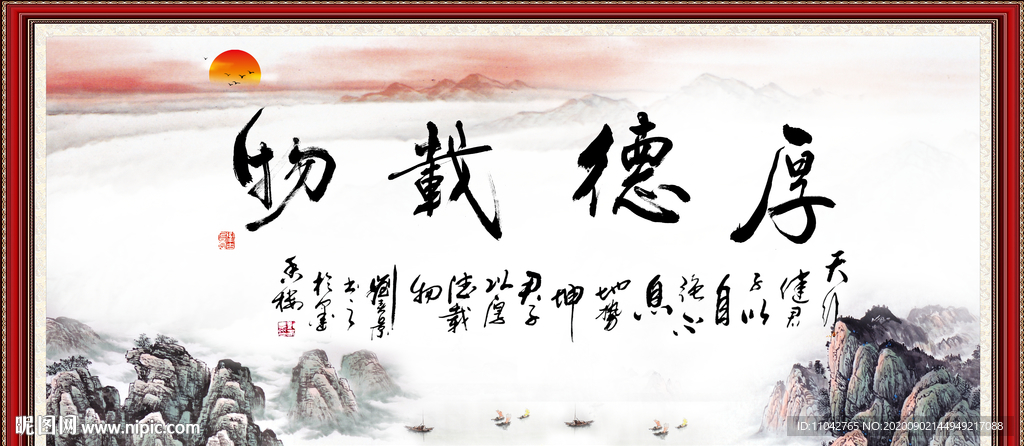 厚德載物
天行
健君
子以
自
強不
息
地勢
坤
君子
以厚
德載
物
書之
昵图网 www.nipic.com
ID:11042765 NO:20200902144949217088